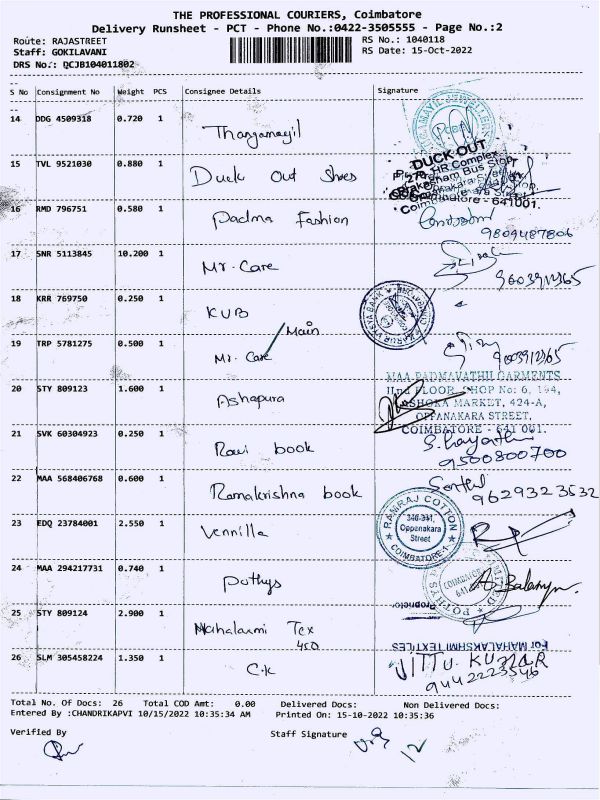 THE PROFESSIONAL COURIERS, Coimbatore
Delivery Runsheet - PCT - Phone No.:0422-3505555 - Page No.:2
Route: RAJASTREET RS No.: 1040118
Staff: GOKILAVANI RS Date: 15-Oct-2022
DRS No.: QCJB104011802
S No Consignment No Weight PCS Consignee Details Signature
14 DDG 4509318 0.720 1 Thangamayil
15 TVL 9521030 0.880 1 Duck Out Shoes DUCK OUT
HR Complex
Bus Stop
Coimbatore - 641001.
16 RMD 796751 0.580 1 Padma Fashion
9809487806
17 SNR 5113845 10.200 1 Mr. Care
9003912365
18 KRR 769750 0.250 1 KVB KARUR VYSYA BANK
Main
19 TRP 5781275 0.500 1 Mr. Care 9003912365
20 STY 809123 1.600 1 Ashapura MAA PADMAVATHI GARMENTS
IInd FLOOR, SHOP No: 6, 184,
ASHOKA MARKET, 424-A,
OPPANAKARA STREET,
COIMBATORE - 641 001.
21 SVK 60304923 0.250 1 Ravi book
9500800700
22 MAA 568406768 0.600 1 Ramakrishna book Senthil
9629323532
23 EDQ 23784001 2.550 1 Vennilla RAMRAJ COTTON
340-341,
Oppanakara
Street
COIMBATORE-1
24 MAA 294217731 0.740 1 Pothys POTHYS
COIMBATORE
Proprietor
25 STY 809124 2.900 1 Mahalaxmi Tex
450 For MAHALAKSHMI TEXTILES
26 SLM 305458224 1.350 1 C.K JITTU. KUMAR
9442223546
Total No. Of Docs: 26 Total COD Amt: 0.00 Delivered Docs: Non Delivered Docs:
Entered By :CHANDRIKAPVI 10/15/2022 10:35:34 AM Printed On: 15-10-2022 10:35:36
Verified By Staff Signature